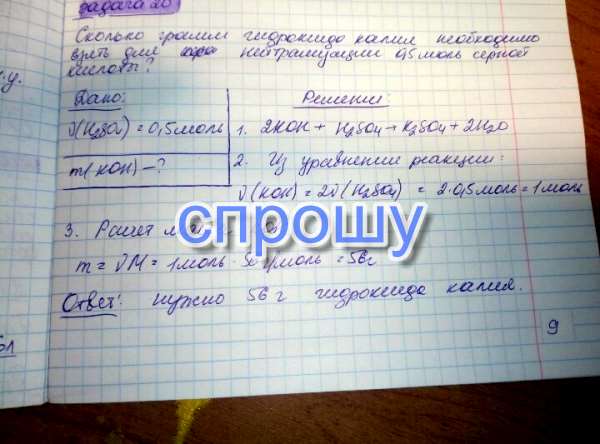 задача 20
Сколько грамм гидроксида калия необходимо
взять для нейтрализации 0,5 моль серной
кислоты?
Дано:
Решение:
ν(H₂SO₄) = 0,5 моль
1. 2KOH + H₂SO₄ → K₂SO₄ + 2H₂O
m(KOH) – ?
2. Из уравнения реакции:
ν(KOH) = 2ν(H₂SO₄) = 2·0,5 моль = 1 моль
3. Расчет
спрошу
m = νM = 1 моль · 56 г/моль = 56 г
Ответ: нужно 56 г гидроксида калия.
9